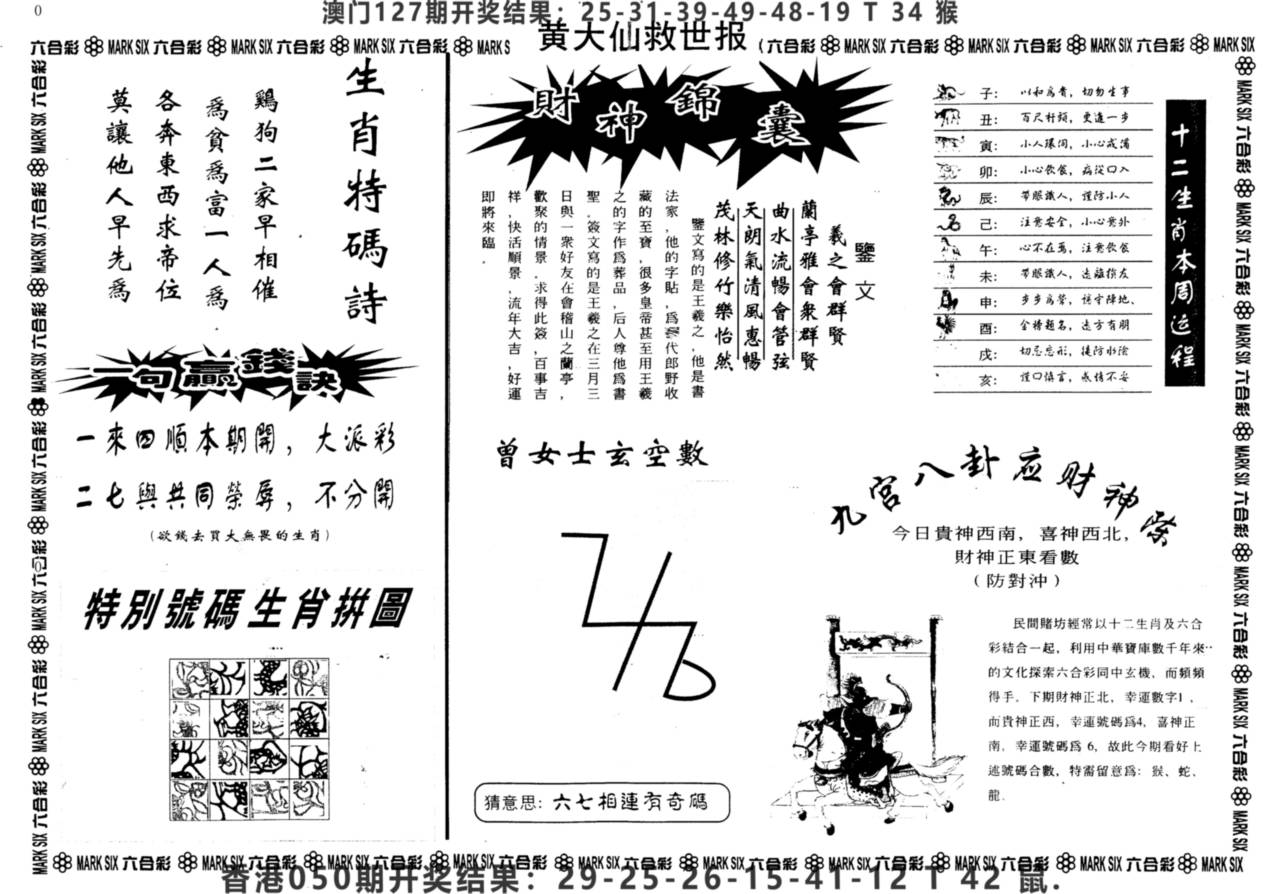 0
澳门127期开奖结果：25-31-39-49-48-19 T 34 猴
六合彩 MARK SIX 六合彩 MARK SIX 六合彩 MARK SIX 六合彩 MARK S
黄大仙救世报
六合彩 MARK SIX 六合彩 MARK SIX 六合彩 MARK SIX 六合彩 MARK SIX
生肖特碼詩
鷄狗二家早相催
爲貧爲富一人爲
各奔東西求帝位
莫讓他人早先爲
一句贏錢訣
一來四順本期開，大派彩
二七與共同榮辱，不分開
（欲錢去買大無畏的生肖）
特別號碼生肖拼圖
財神錦囊
鑒文
羲之會群賢
蘭亭雅會衆群賢
曲水流暢會管弦
天朗氣清風惠暢
茂林修竹樂怡然
鑒文寫的是王羲之，他是書
法家，他的字貼，爲歷代郎野收
藏的至寶，很多皇帝甚至用王羲
之的字作爲葬品，后人尊他爲書
聖。簽文寫的是王羲之在三月三
日與一衆好友在會稽山之蘭亭，
歡聚的情景。求得此簽，百事吉
祥，快活順景，流年大吉，好運
即將來臨。
十二生肖本周运程
子：以和爲貴，切勿生事
丑：百尺杆頭，更進一步
寅：小人環伺，小心戒備
卯：小心飲食，病從口入
辰：帶眼識人，謹防小人
己：注意安全，小心意外
午：心不在焉，注意飲食
未：帶眼識人，遠離損友
申：步步爲營，謹守陣地、
酉：金榜題名，遠方有朋
戌：切忌忘形，提防水險
亥：謹口慎言，感情不妥
曾女士玄空數
猜意思：六七相連有奇碼
九宮八卦应财神簽
今日貴神西南，喜神西北，
財神正東看數
（防對沖）
民間賭坊經常以十二生肖及六合
彩結合一起，利用中華寶庫數千年來
的文化探索六合彩同中玄機，而頻頻
得手。下期財神正北，幸運數字1，
而貴神正西，幸運號碼爲4，喜神正
南，幸運號碼爲 6，故此今期看好上
述號碼合數，特需留意爲：猴、蛇、
龍。
MARK SIX 六合彩 MARK SIX 六合彩 MARK SIX 六合彩 MARK SIX 六合彩 MARK SIX 六合彩 MARK SIX 六合彩 MARK SIX
MARK SIX 六合彩 MARK SIX 六合彩 MARK SIX 六合彩 MARK SIX 六合彩 MARK SIX 六合彩 MARK SIX 六合彩 MARK SIX 六合彩 MARK SIX 六合彩 MARK SIX 六合彩 MARK SIX
香港050期开奖结果：29-25-26-15-41-12 T 42 鼠.